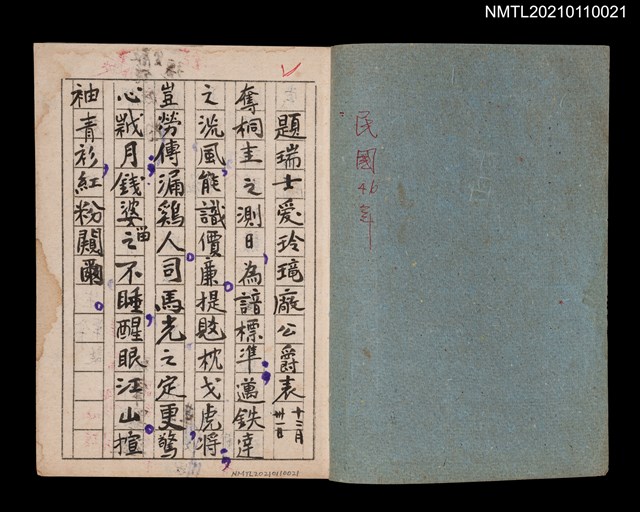 NMTL20210110021
民國46年
題瑞士愛玲琦廠公爵表 十二月卅一日
奪桐圭之測日，為諳標準；萬鉄達
之洗風，能識價廉。提敃枕戈虎將；
豈勞傳漏鷄人。司馬光之定更，驚
心戢月；錢婆留之不睡，醒眼江山。揎
袖青衫，紅粉闝圝。
NMTL20210110021